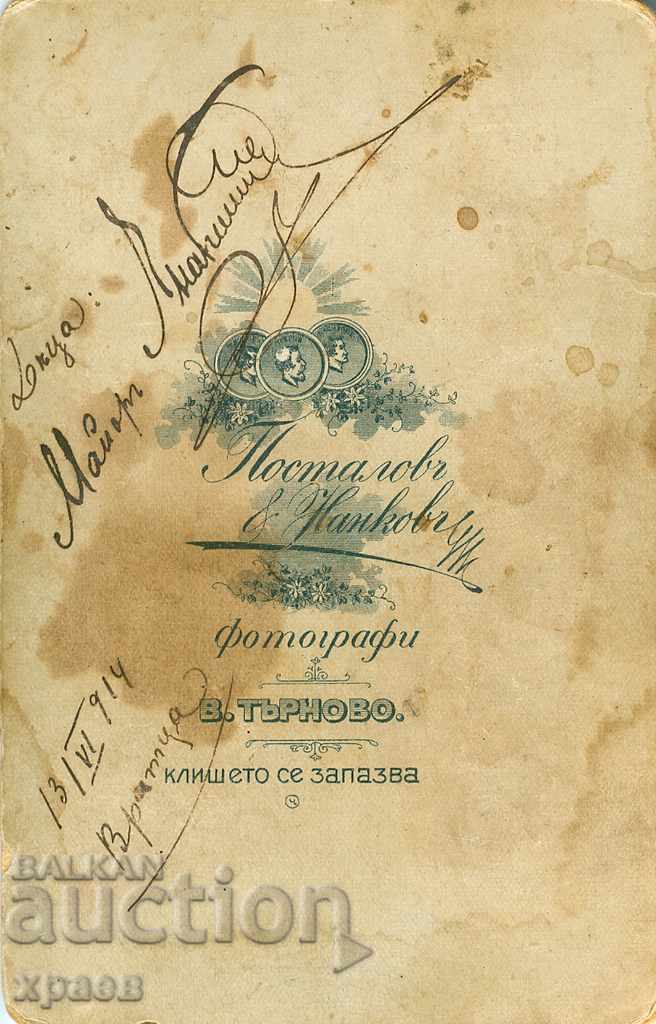 Майоръ
Посталовъ
& Нанковъ
фотографи
В. ТЪРНОВО.
КЛИШЕТО СЕ ЗАПАЗВА
Ч
13/VI 914
Вратца
BALKAN
auction
храев